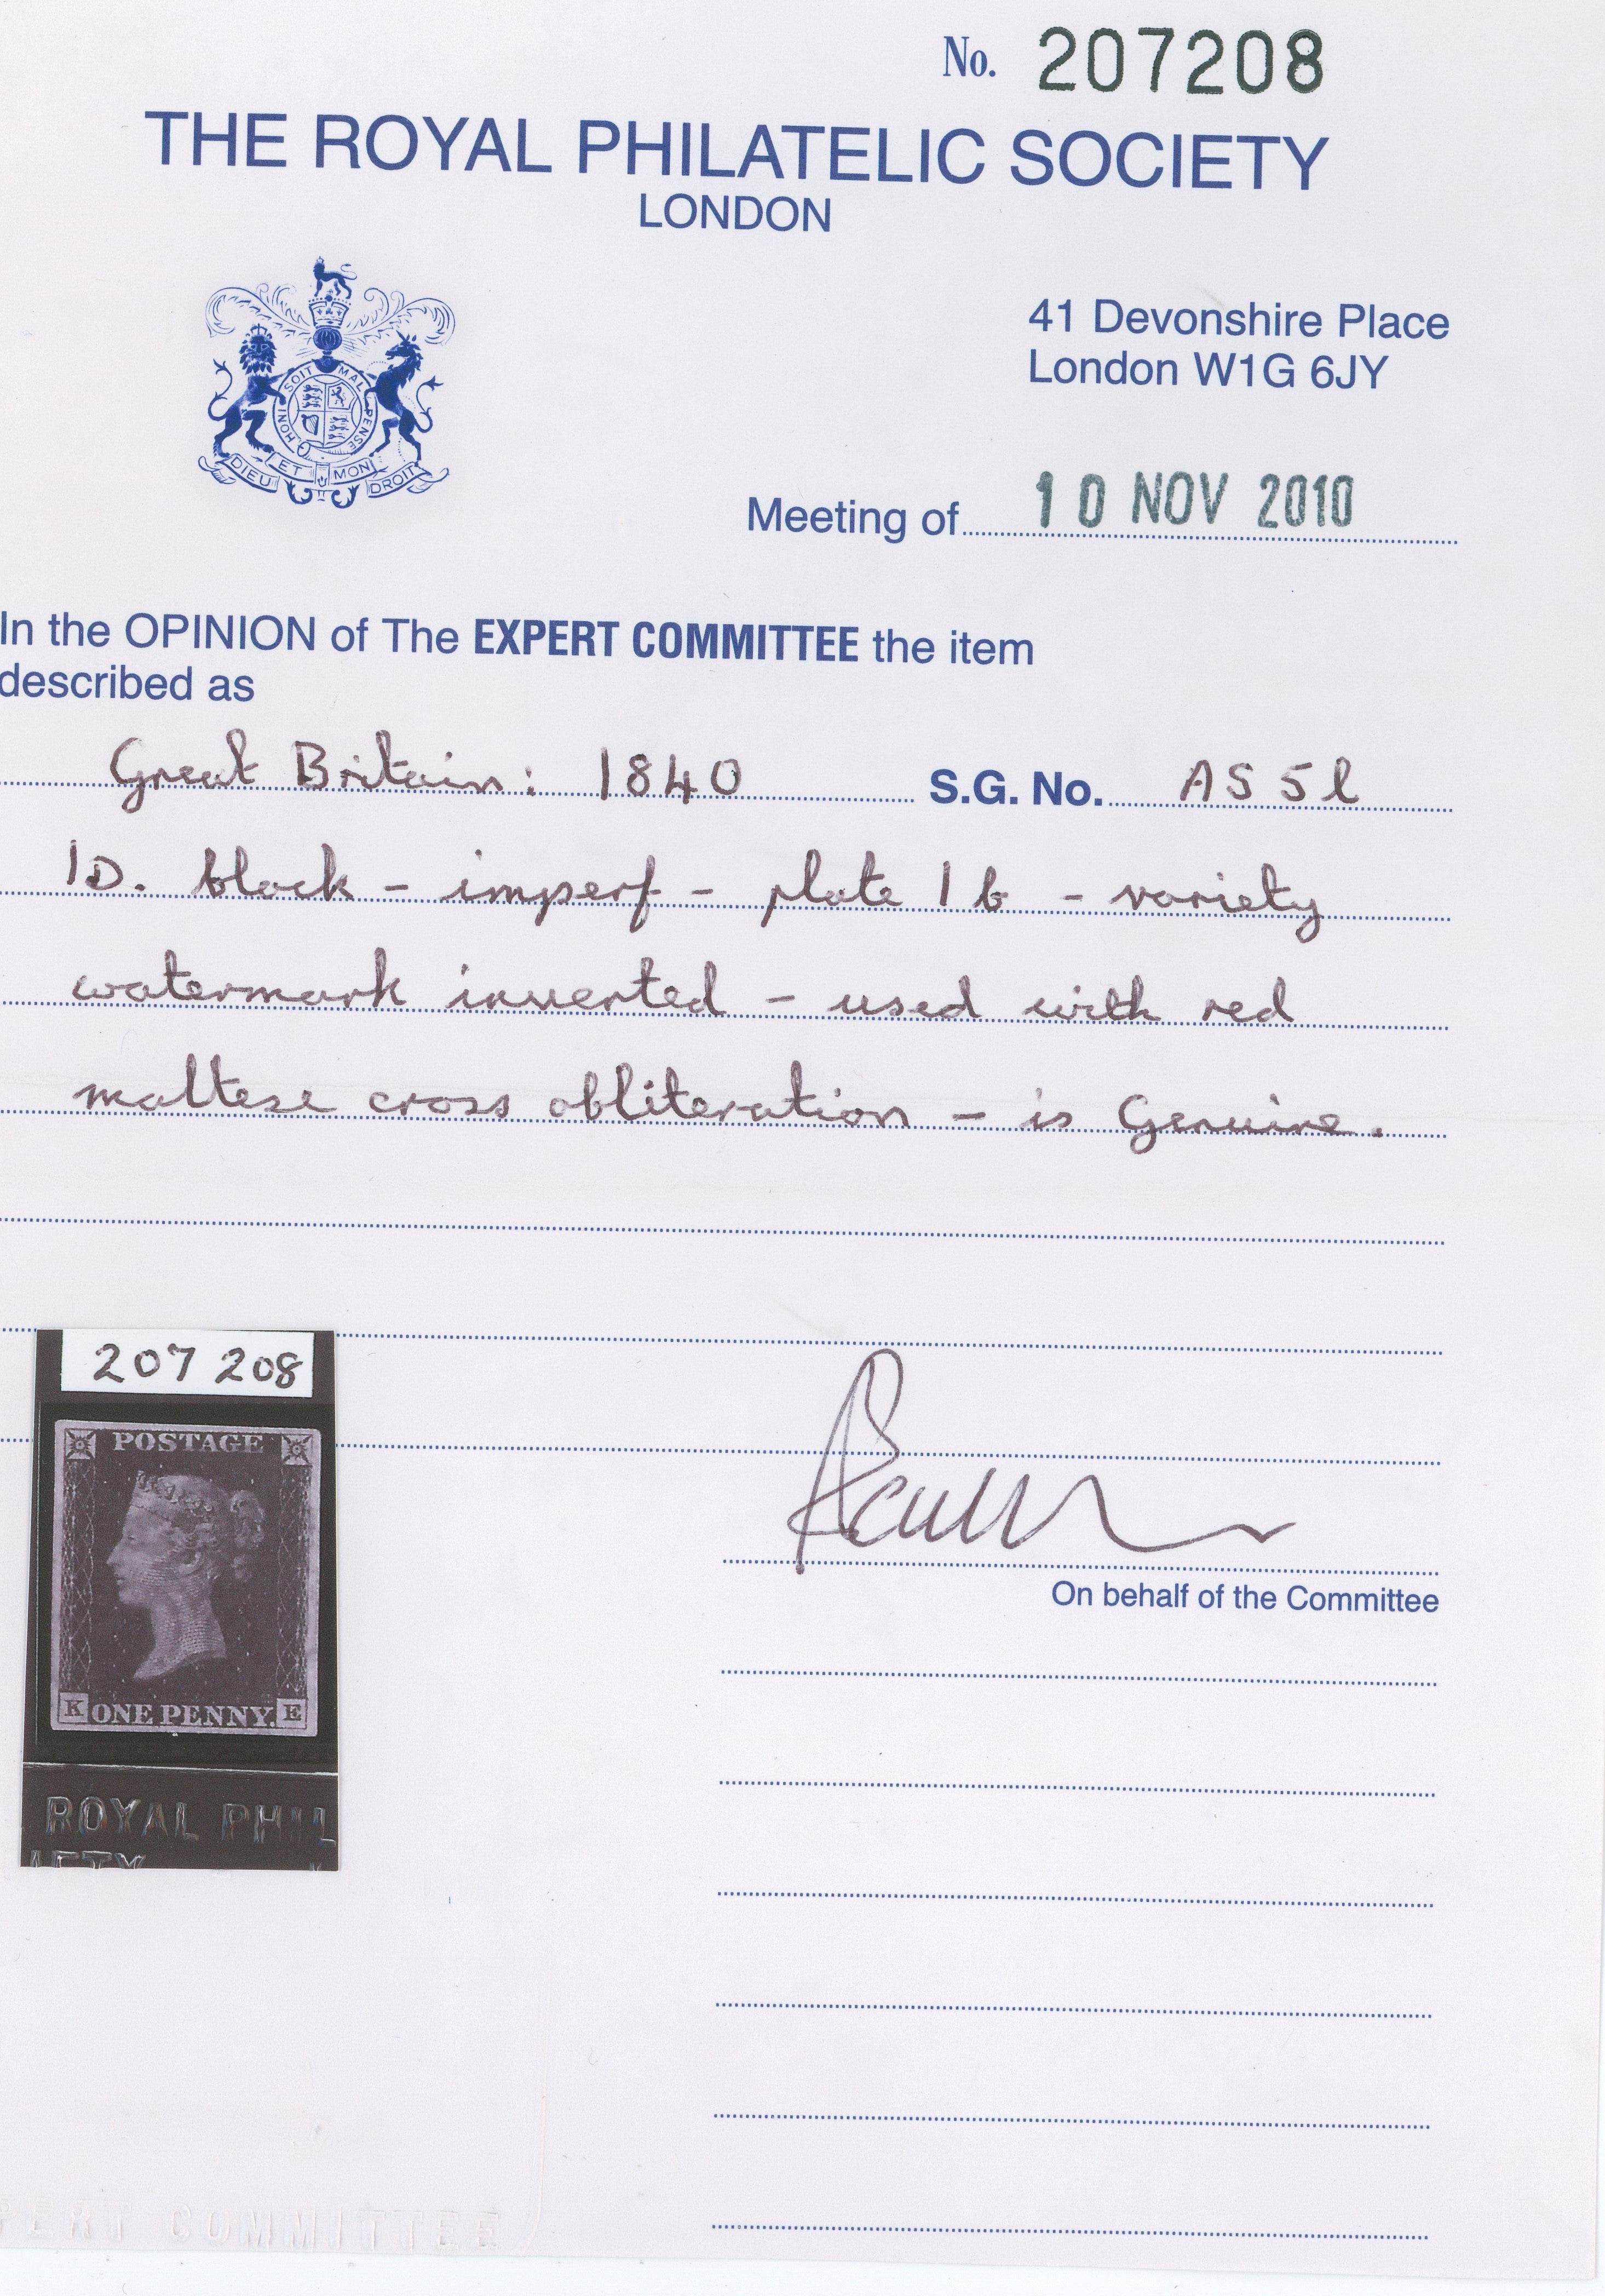 No. 207208
THE ROYAL PHILATELIC SOCIETY
LONDON
HONI SOIT MAL PENSE
DIEU ET MON DROIT
41 Devonshire Place
London W1G 6JY
Meeting of 10 NOV 2010
In the OPINION of The EXPERT COMMITTEE the item
described as
Great Britain: 1840 S.G. No. AS 5l
1D. black - imperf - plate 1b - variety
watermark inverted - used with red
maltese cross obliteration - is Genuine.
207 208
POSTAGE
K ONE PENNY. E
ROYAL PHIL
IETY
On behalf of the Committee
PERT COMMITTEE